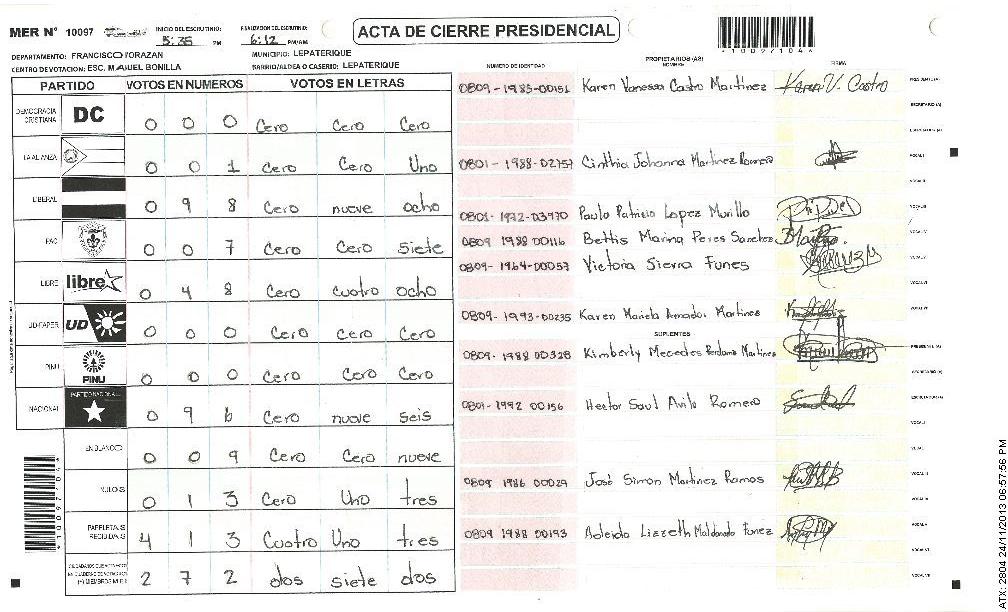 MER N° 10097
INICIO DEL ESCRUTINIO: 5:35 PM
FINALIZACION DEL ESCRUTINIO: 6:12 PM/AM
ACTA DE CIERRE PRESIDENCIAL
*10097104*
DEPARTAMENTO: FRANCISCO MORAZAN
MUNICIPIO: LEPATERIQUE
CENTRO DE VOTACION: ESC. MANUEL BONILLA
BARRIO/ALDEA O CASERIO: LEPATERIQUE
PARTIDO VOTOS EN NUMEROS VOTOS EN LETRAS
DEMOCRACIA CRISTIANA DC 0 0 0 Cero Cero Cero
LA ALIANZA 0 0 1 Cero Cero Uno
LIBERAL 0 9 8 Cero nueve ocho
PAC 0 0 7 Cero Cero siete
LIBRE libre 0 4 8 Cero cuatro ocho
UD-FAPER UD 0 0 0 Cero Cero Cero
PINU PINU 0 0 0 Cero Cero Cero
NACIONAL PARTIDO NACIONAL 0 9 6 Cero nueve seis
EN BLANCO 0 0 9 Cero Cero nueve
NULOS 0 1 3 Cero Uno tres
PAPELETAS RECIBIDAS 4 1 3 Cuatro Uno tres
2 7 2 dos siete dos
*10097104*
NUMERO DE IDENTIDAD PROPIETARIOS (AS) NOMBRE FIRMA
0809-1985-00151 Karen Vanessa Castro Martinez Karen V. Castro PRESIDENTE (A)
SECRETARIO (A)
ESCRUTADOR (A)
0801-1988-02757 Cinthia Johanna Martinez Romero VOCAL I
VOCAL II
0801-1972-03970 Paulo Patricio Lopez Murillo VOCAL III
0809 1988 00116 Bettis Marina Peres Sanchez VOCAL IV
0809-1964-00057 Victoria Sierra Funes VOCAL V
VOCAL VI
0809-1993-00235 Karen Mariela Amador Martines VOCAL VII
SUPLENTES
0809-1988 00328 Kimberly Mecedes Perdomo Martines PRESIDENTE (A)
SECRETARIO (A)
0801-1992 00156 Hector Saul Avila Romero ESCRUTADOR (A)
VOCAL I
VOCAL II
0809 1986 00029 José Simon Martinez Ramos VOCAL III
VOCAL IV
0809 1988 00193 Adleida Lizzeth Maldonado Funez VOCAL V
VOCAL VI
VOCAL VII
ATX: 2804 24/11/2013 06:57:56 PM